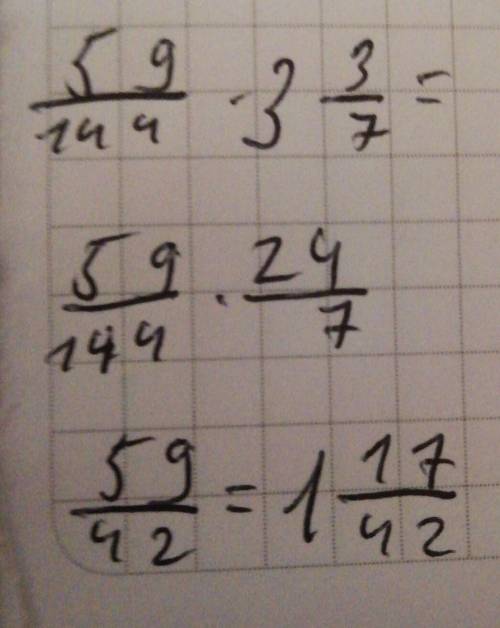 59/144 · 3 3/7 =
59/144 · 24/7
59/42 = 1 17/42